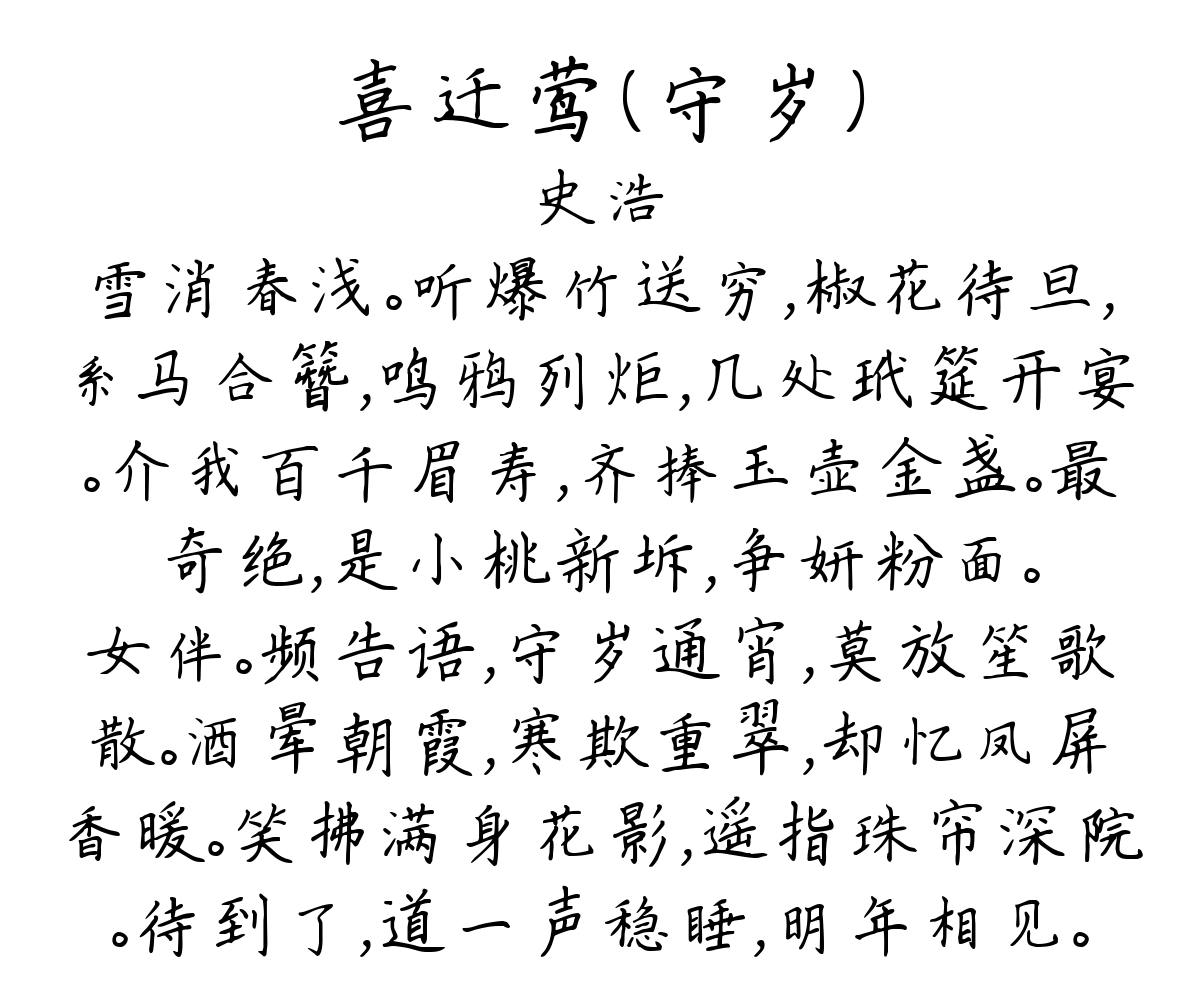 喜迁莺(守岁)
史浩
雪消春浅。听爆竹送穷,椒花待旦,
系马合簪,鸣鸦列炬,几处玳筵开宴
。介我百千眉寿,齐捧玉壶金盏。最
奇绝,是小桃新坼,争妍粉面。
女伴。频告语,守岁通宵,莫放笙歌
散。酒晕朝霞,寒欺重翠,却忆凤屏
香暖。笑拂满身花影,遥指珠帘深院
。待到了,道一声稳睡,明年相见。